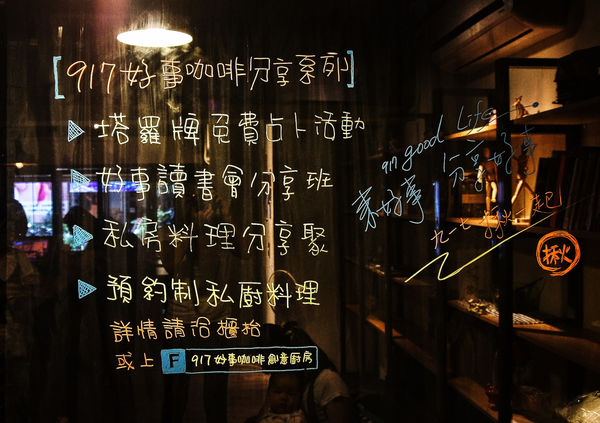 [917好事咖啡分享系列]
塔羅牌免費占卜活動
好事讀書會分享班
私房料理分享聚
預約制私廚料理
詳情請洽櫃枱
或上 F 917好事咖啡創意廚房
917 good Life
來好事 分享好事
九一七揪一起
揪